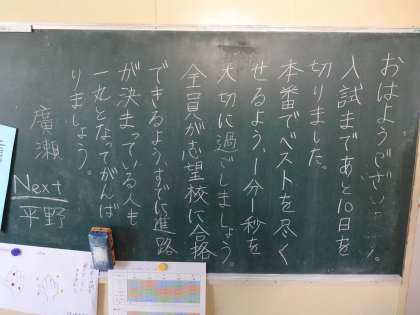 おはようございます。
入試まであと10日を
切りました。
本番でベストを尽く
せるよう、1分1秒を
大切に過ごしましょう。
全員が志望校に合格
できるようすでに進路
が決まっている人も
一丸となってがんば
りましょう。
廣瀬
Next
平野